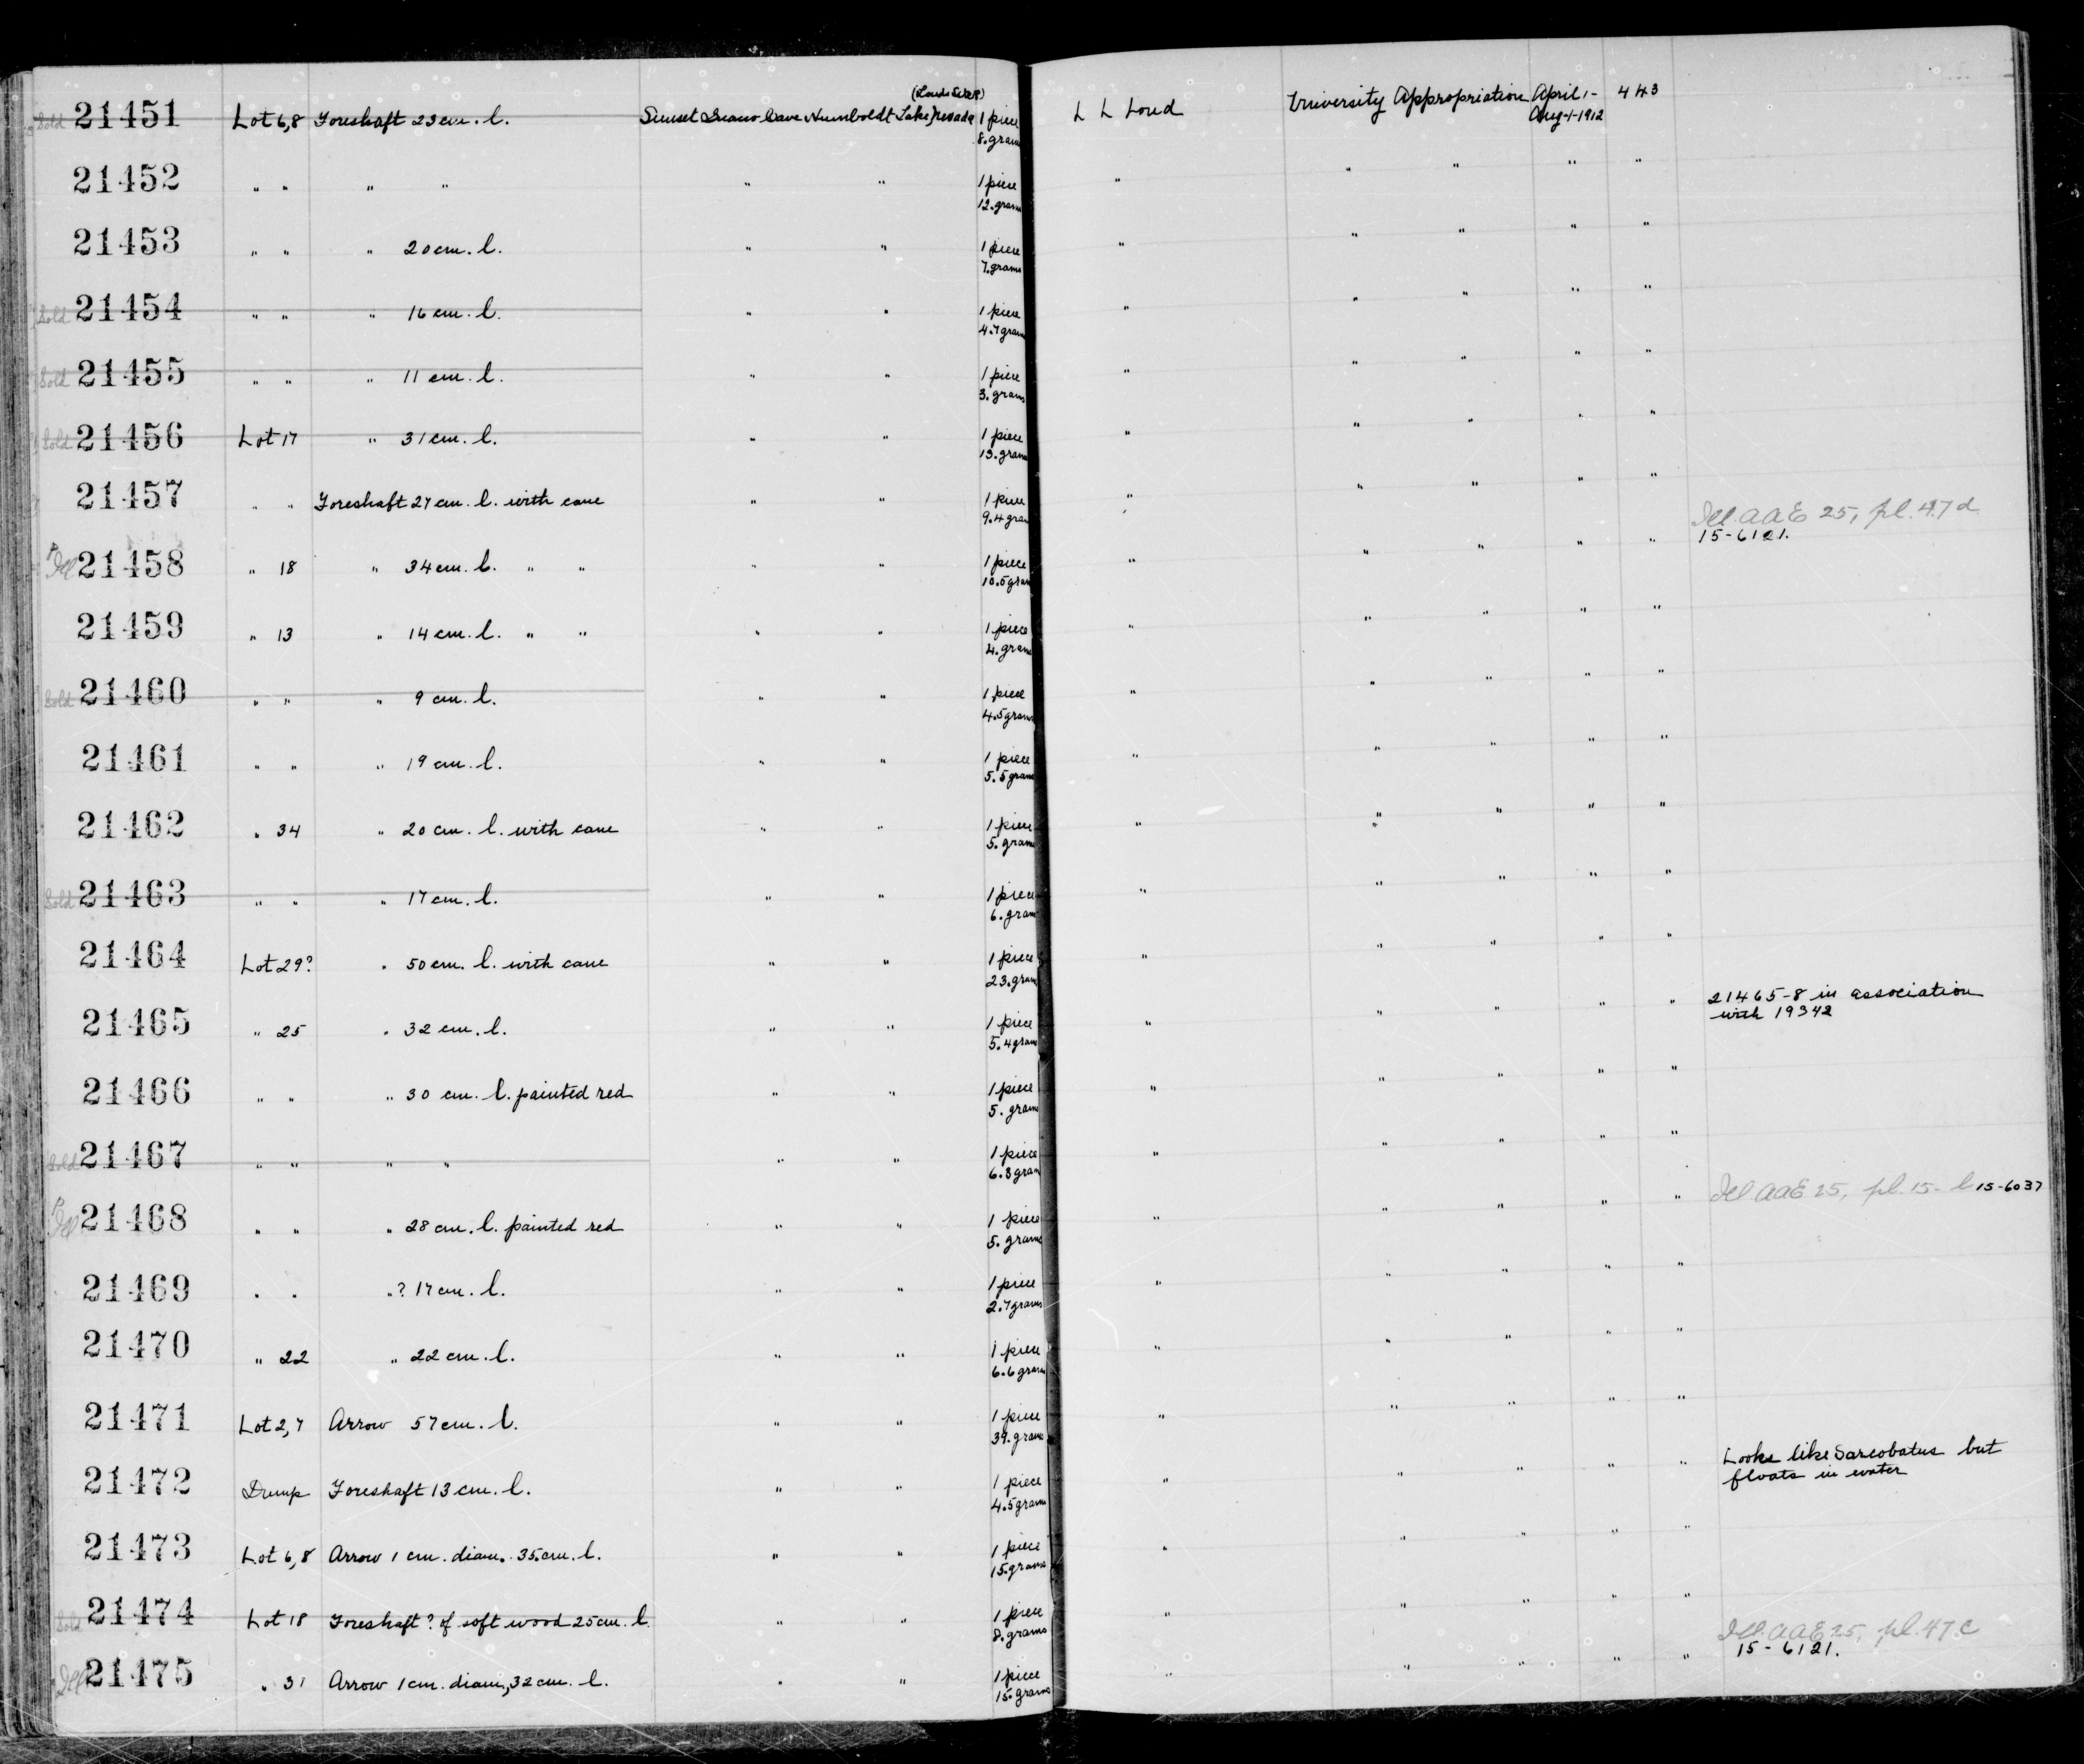 Sold 21451 Lot 6,8 Foreshaft 23 cm. l. Sunset Guano Cave Humboldt Lake, Nevada 1 piece 8. grams L L Loud University Appropriation April 1- Aug-1-1912 443
21452 " " " " " " 1 piece 12. grams " " " " "
21453 " " " 20 cm. l. " " 1 piece 7. grams " " " " "
Sold 21454 " " " 16 cm. l. " " 1 piece 4.7 grams " " " " "
Sold 21455 " " " 11 cm. l. " " 1 piece 3. grams " " " " "
Sold 21456 Lot 17 " 31 cm. l. " " 1 piece 13. grams " " " " "
21457 " " Foreshaft 27 cm. l. with cane " " 1 piece 9.4 gram " " " " "
Ill 21458 " 18 " 34 cm. l. " " " " 1 piece 10.5 gram " " " " " Ill. AAE 25, pl. 47d 15-6121.
21459 " 13 " 14 cm. l. " " " " 1 piece 4. grams " " " " "
Sold 21460 " " " 9 cm. l. " " 1 piece 4.5 grams " " " " "
21461 " " " 19 cm. l. " " 1 piece 5.5 grams " " " " "
21462 " 34 " 20 cm. l. with cane " " 1 piece 5. grams " " " " "
Sold 21463 " " " 17 cm. l. " " 1 piece 6. gram " " " " "
21464 Lot 29? " 50 cm. l. with cane " " 1 piece 23. gram " " " " "
21465 " 25 " 32 cm. l. " " 1 piece 5.4 gram " " " " " 21465-8 in association with 19342
21466 " " " 30 cm. l. painted red " " 1 piece 5. grams " " " " "
Sold 21467 " " " " " " 1 piece 6.3 gram " " " " "
Ill 21468 " " " 28 cm. l. painted red " " 1 piece 5. grams " " " " " Ill. AAE 25, pl. 15-l 15-6037
21469 " " "? 17 cm. l. " " 1 piece 2.7 grams " " " " "
21470 " 22 " 22 cm. l. " " 1 piece 6.6 grams " " " " "
21471 Lot 2,7 Arrow 57 cm. l. " " 1 piece 39. grams " " " " "
21472 Dump Foreshaft 13 cm. l. " " 1 piece 4.5 grams " " " " " Looks like Sarcobatus but floats in water
21473 Lot 6,8 Arrow 1 cm. diam. 35 cm. l. " " 1 piece 15. grams " " " " "
Sold 21474 Lot 18 Foreshaft? of soft wood 25 cm. l. " " 1 piece 8. grams " " " " "
Ill 21475 " 31 Arrow 1 cm. diam, 32 cm. l. " " 1 piece 15. grams " " " " " Ill. AAE 25, pl. 47c 15-6121.